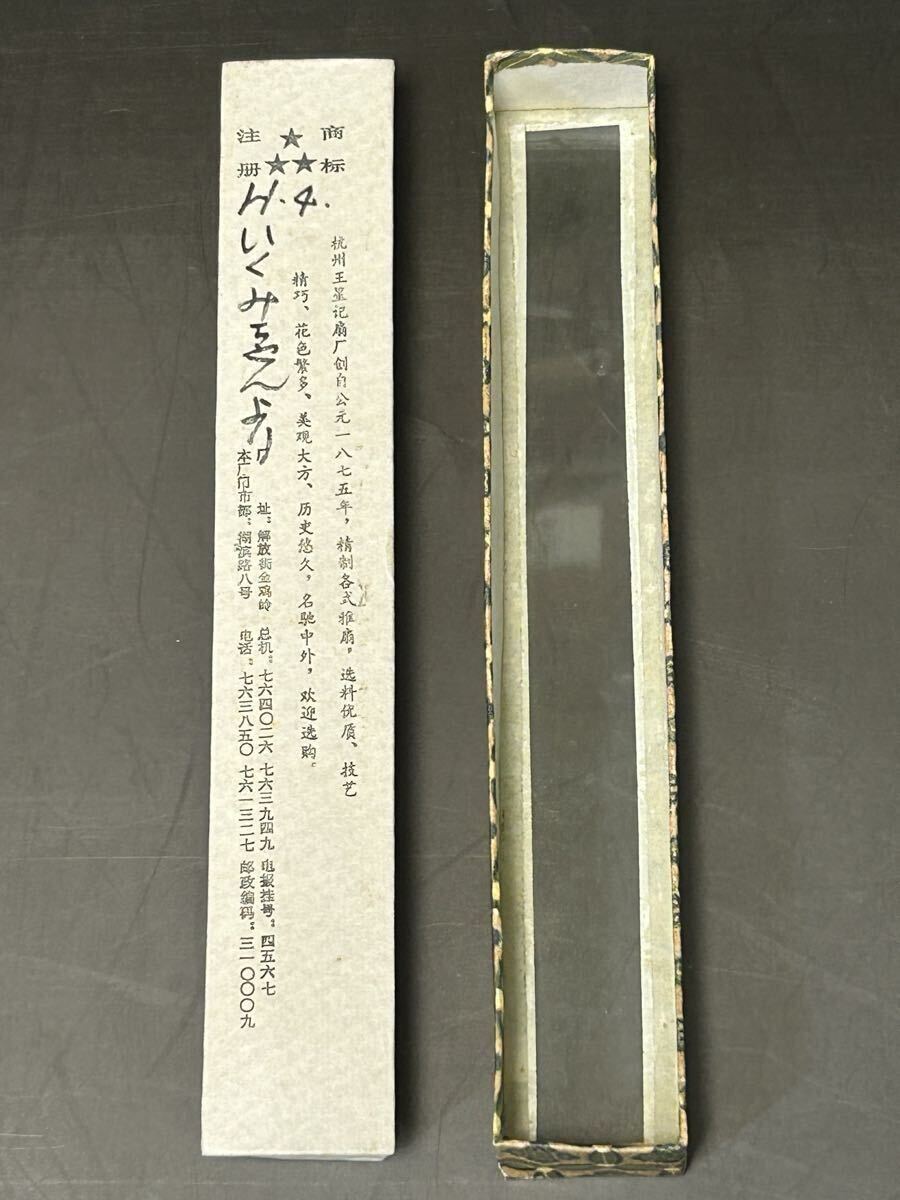 商标
注册
杭州王星记扇厂创自公元一八七五年，精制各式雅扇，选料优质、技艺
精巧、花色繁多、美观大方、历史悠久，名驰中外，欢迎选购。
址：解放街金鸡岭 总机：七六四〇二六 七六三九四九 电报挂号：四五六七
本厂门市部：湖滨路八号 电话：七六三八五〇 七六一三二七 邮政编码：三一〇〇〇九
H.4.
いくみちゃんより